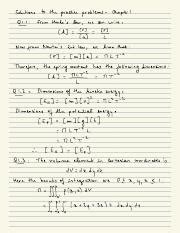 Solutions to the practice problems - Chapter 1
Q1.1. From Hooke's law, we can write:
[k] = [F]/[x] = [F]/L
Now from Newton's 2nd law, we know that:
[F] = [m][a] = M L T⁻²
Therefore, the spring constant has the following dimensions:
[k] = M L T⁻² / L = M T⁻²
Q1.2. Dimensions of the kinetic energy:
Dimensions of the potential energy:
= M L T⁻² L
= M L² T⁻²
Q1.3. The volume element in Cartesian coordinates is
dV = dx dy dz
Here the bounds of integration are 0 ≤ x, y, z ≤ 1.